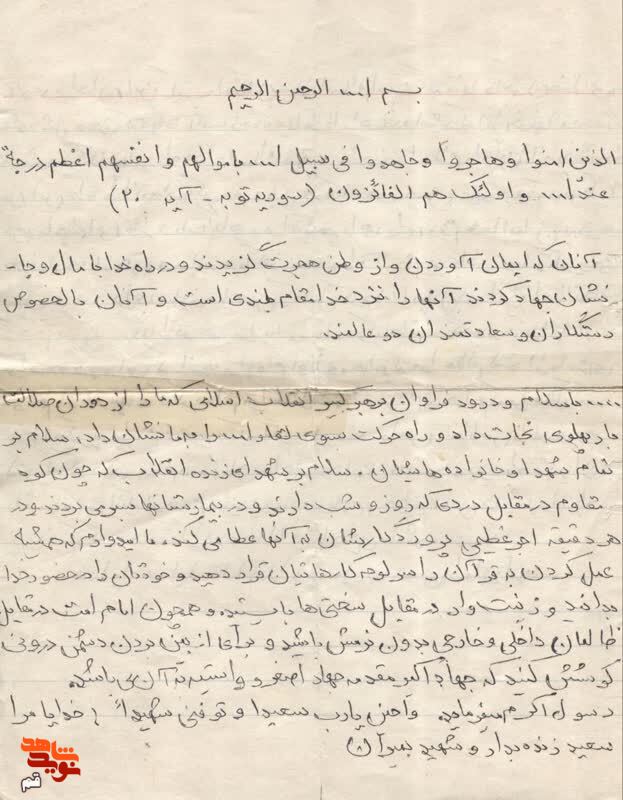 بسم ا... الرحمن الرحیم
الذین امنوا و هاجروا و جاهدوا فی سبیل ا... باموالهم و انفسهم اعظم درجة
عند ا... و اولئک هم الفائزون (سوریه توبه - آیه ۲۰)
آنان که ایمان آوردن و از وطن هجرت گزیدند و در راه خدا با مال و جا-
نشان جهاد کردند آنها را نزد خدا مقام بلندی است و آنان بالخصوص
رستگاران و سعادتمندان دو عالمند.
.... با سلام و درود فراوان بر رهبر کبیر انقلاب اسلامی که ما را از دوران ضلالت
بار پهلوی نجات داد و راه حرکت سوی لقاء ا... را به ما نشان داد، سلام بر
تمام شهدا و خانواده هایشان. سلام بر شهدای زنده انقلاب که چون کوه
مقاوم در مقابل دردی که روز و شب دارند و در بیمارستانها بسر می بردند و در
هر دقیقه اجر عظیمی پروردگارشان به آنها عطا می کند. ما امیدوارم که همیشه
عمل کردن به قرآن را سر لوحه کارهایتان قرار دهید و خودتان را در حضور خدا
بدانید و زینت وار در مقابل سختی ها بایستید و همچون امام امت در مقابل
ظالمان داخلی و خارجی بدون نرمش باشید و برای از بین بردن دشمن درونی
کوشش کنید که جهاد اکبر مقدمه جهاد اصغر و وابسته به آن می باشد.
رسول اکرم میفرماید واحینی یا رب سعیدا و توفنی شهیدا؛ خدایا مرا
سعید زنده بدار و شهید بمیران
نوید شاهد
قم